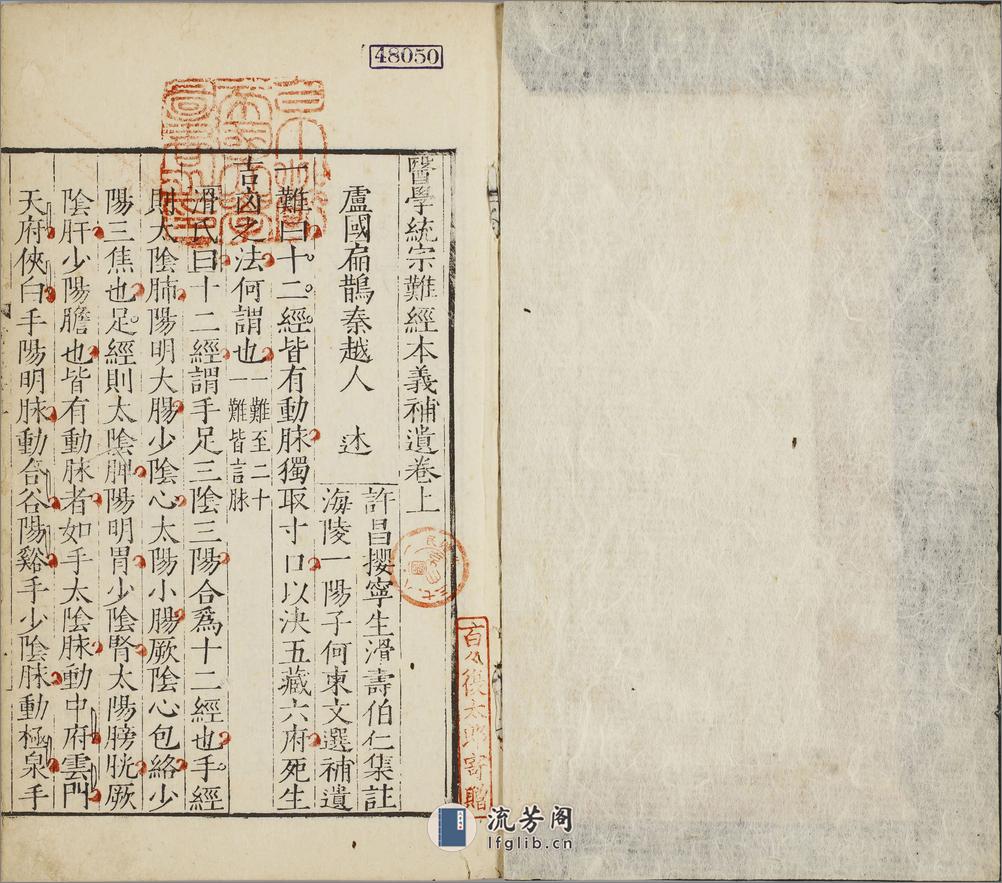 48050
醫學統宗難經本義補遺卷上
盧國扁鵲秦越人 述
許昌攖寧生滑壽伯仁集註
海陵一陽子何柬文選補遺
一難曰十二經皆有動脉獨取寸口以決五藏六府死生
吉凶之法何謂也一難至二十
一難皆言脉
滑氏曰十二經謂手足三陰三陽合爲十二經也手經
則太陰肺陽明大腸少陰心太陽小腸厥陰心包絡少
陽三焦也足經則太陰脾陽明胃少陰腎太陽膀胱厥
陰肝少陽膽也皆有動脉者如手太陰脉動中府雲門
天府俠白手陽明脉動合谷陽谿手少陰脉動極泉手
寄贈
流芳阁
lfglib.cn